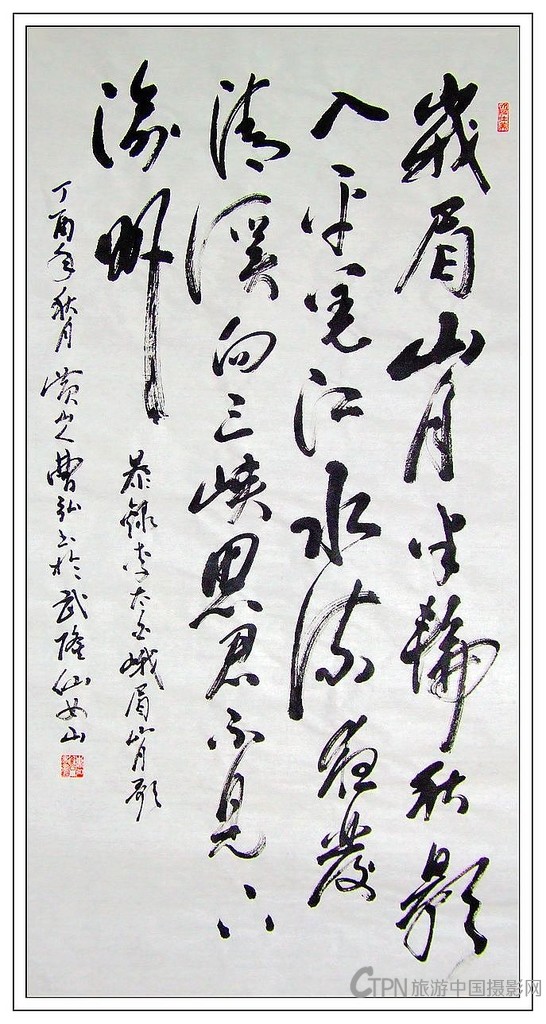 峩眉山月半輪秋影
入平羌江水流夜發
清溪向三峽思君不見下
渝州
恭錄李太白峨眉山月歌
丁酉年秋月 山人曹弘书於武隆仙女山
CTPN旅游中国摄影网